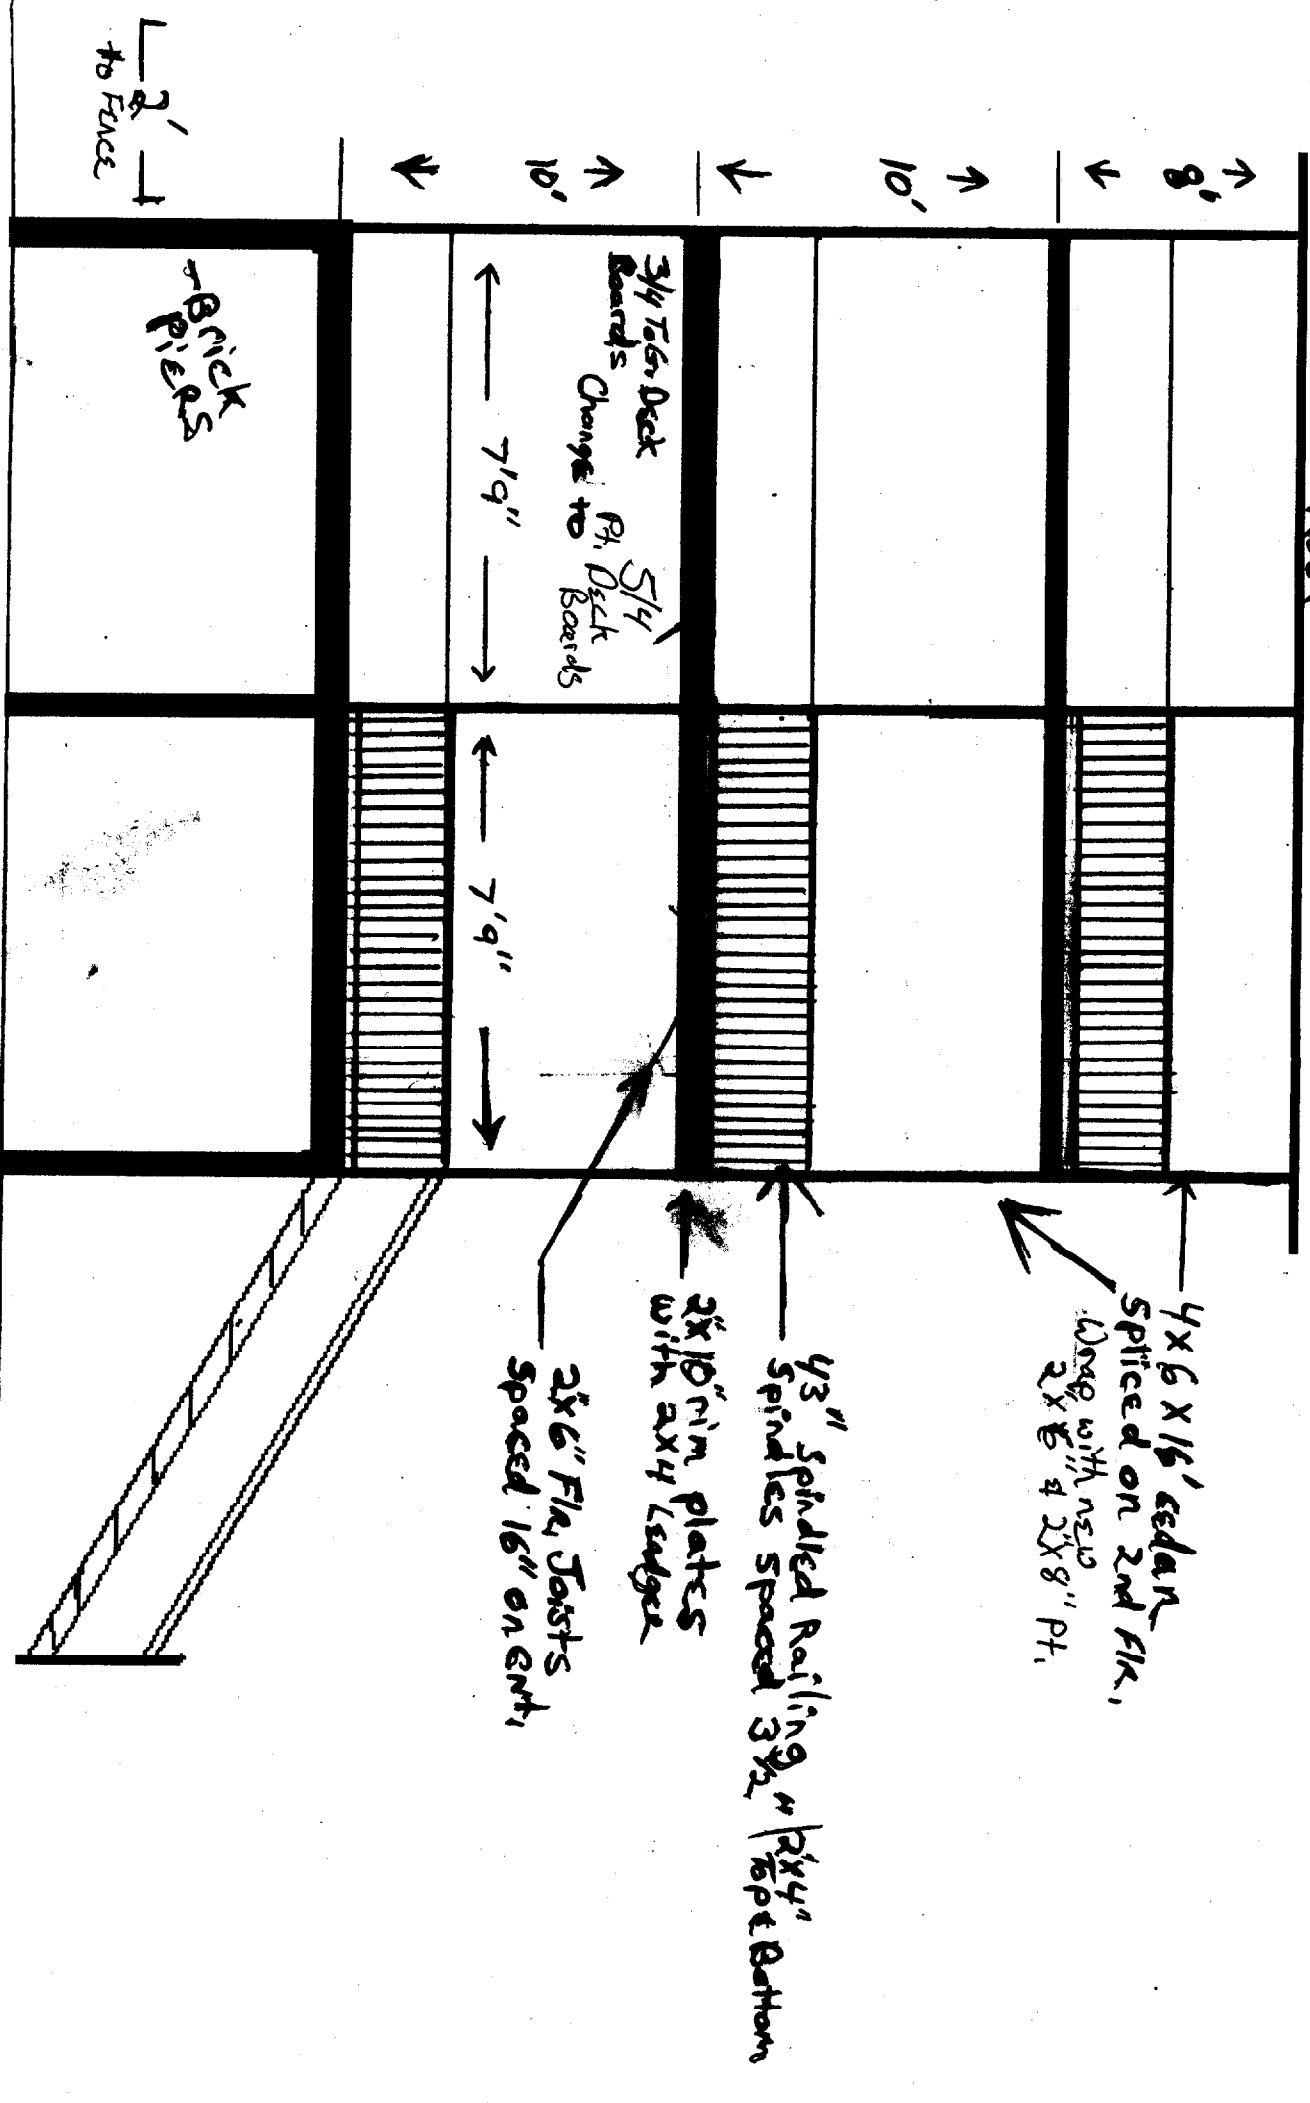 8'
10'
10'
2'
to Fence
4 x 6 x 16' cedar
Spliced on 2nd Flr.
Wrap with new
2x6" & 2x8" pt.
43" Spindled Railing
Spindles Spaced 3 1/2"
2"x4"
Top & Bottom
2"x10" rim plates
with 2x4 Leadger
2"x6" Flr. Joists
Spaced 16" on Cent.
3/4 T&G Deck
Boards
Change to
5/4
Pt. Deck
Boards
7'9"
7'9"
-Brick
piers